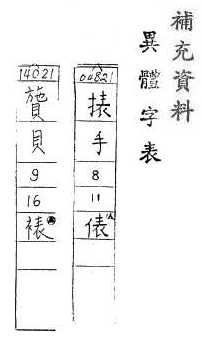 補充資料
異體字表
04821
手
8
11
俵
14021
貝
9
16
裱